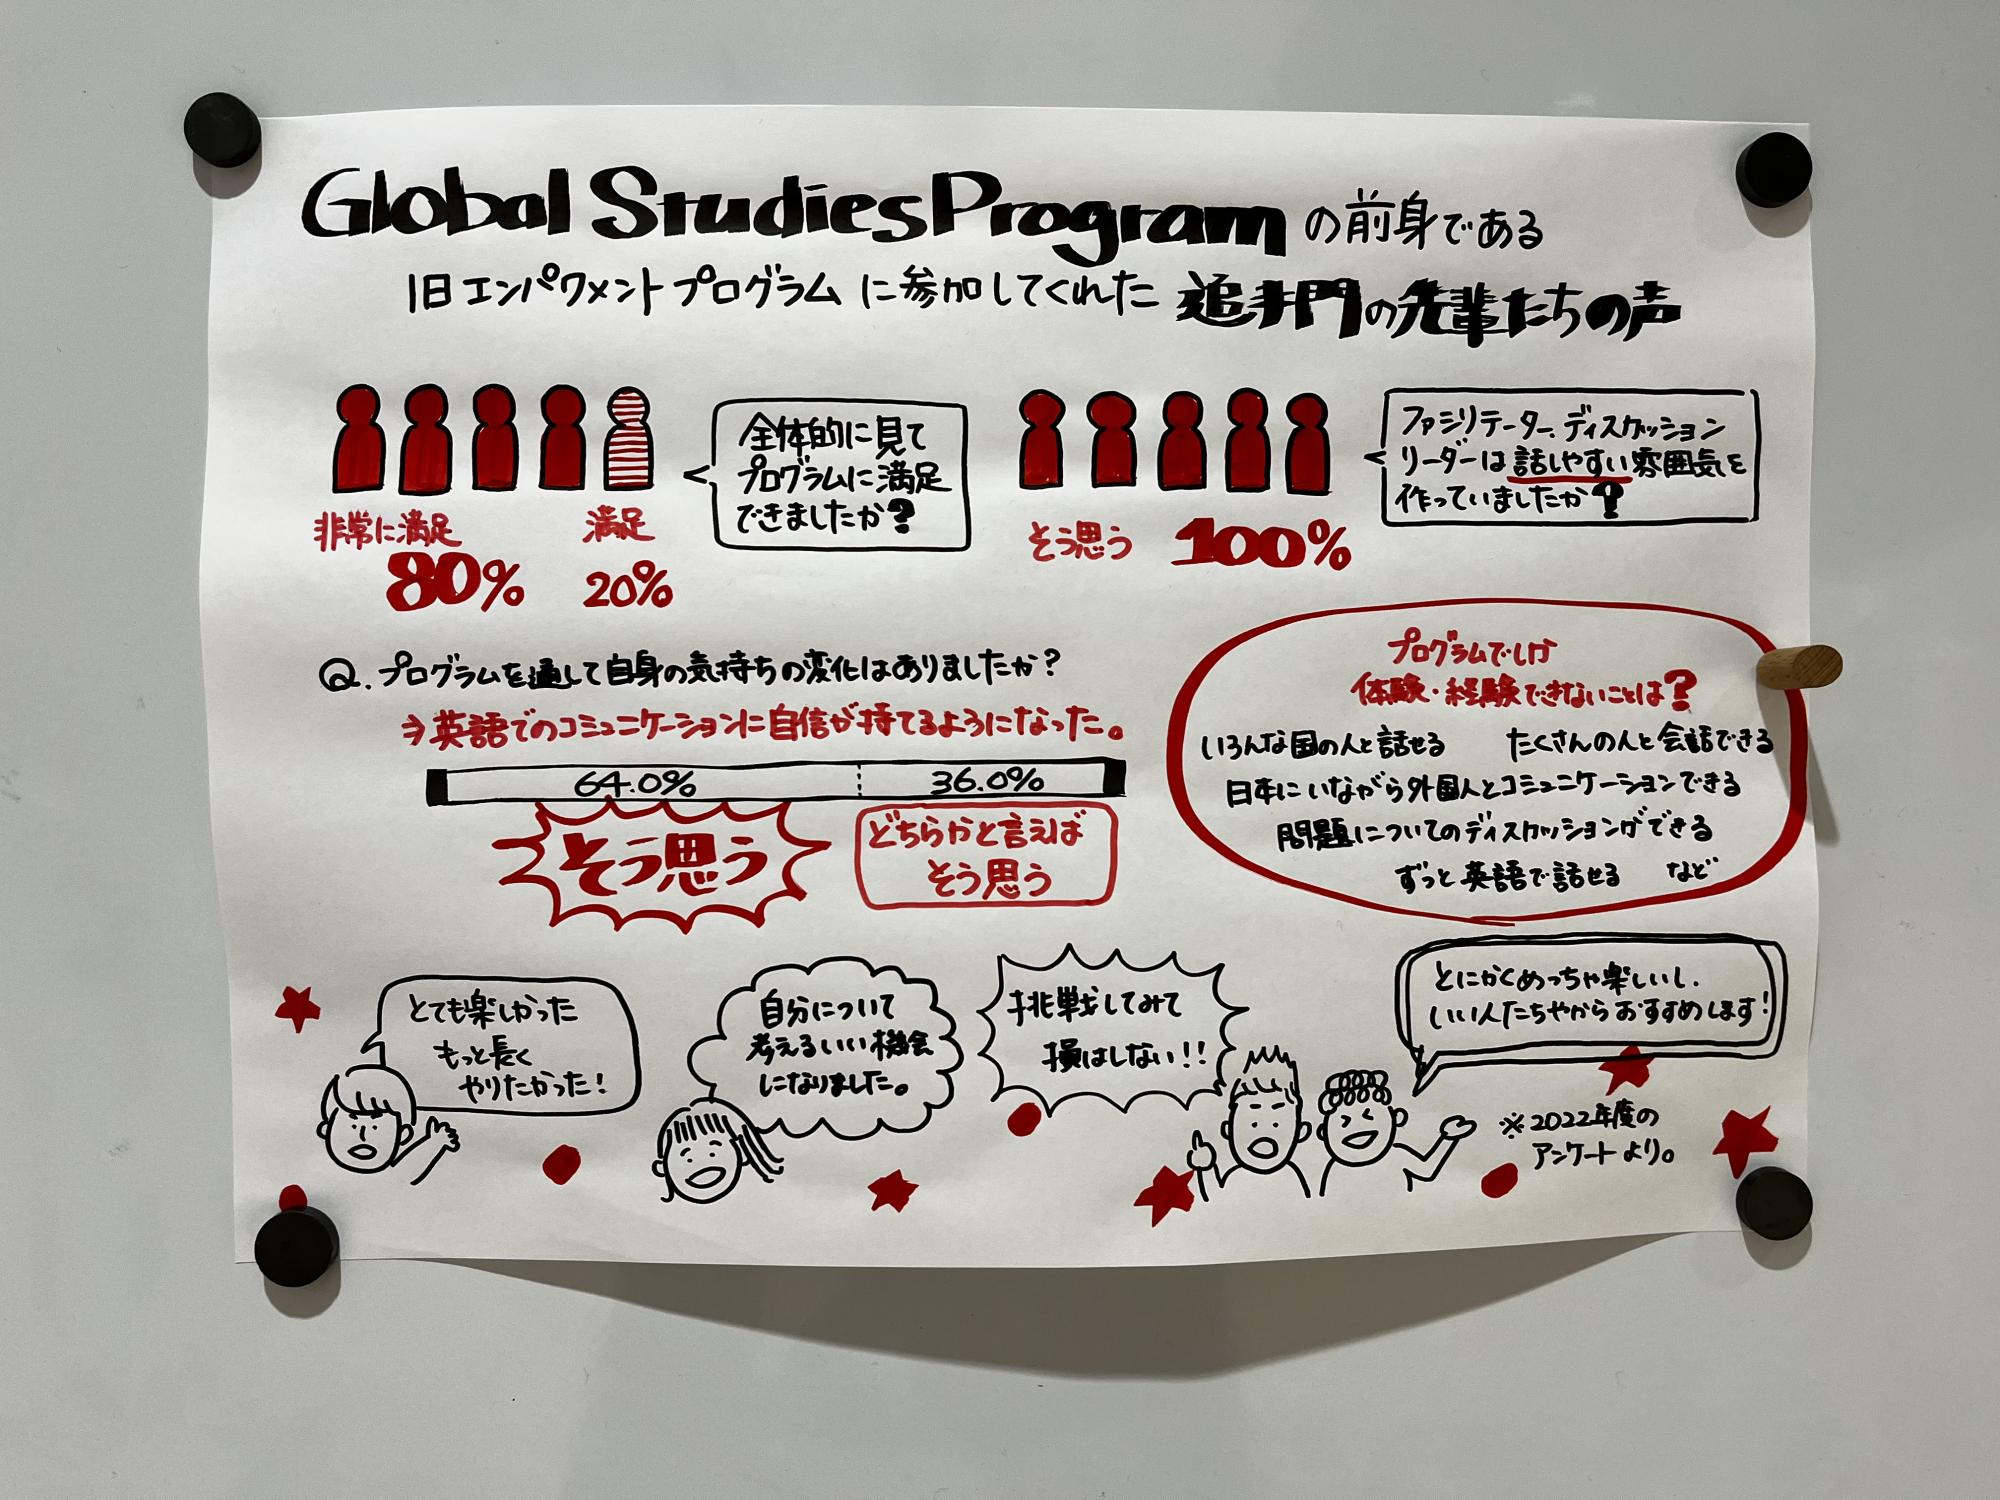 Global Studies Program の前身である
旧エンパワメントプログラムに参加してくれた 追手門の先輩たちの声
全体的に見て
プログラムに満足
できましたか?
非常に満足
80%
満足
20%
ファシリテーター、ディスカッション
リーダーは話しやすい雰囲気を
作っていましたか?
そう思う 100%
Q.プログラムを通して自身の気持ちの変化はありましたか?
⇒英語でのコミュニケーションに自信が持てるようになった。
64.0% 36.0%
そう思う
どちらかと言えば
そう思う
プログラムでしか
体験・経験できないことは?
いろんな国の人と話せる たくさんの人と会話できる
日本にいながら外国人とコミュニケーションできる
問題についてのディスカッションができる
ずっと英語で話せる など
とても楽しかった
もっと長く
やりたかった!
自分について
考えるいい機会
になりました。
挑戦してみて
損はしない!!
とにかくめっちゃ楽しいし、
いい人たちやからおすすめします!
※2022年度の
アンケートより。